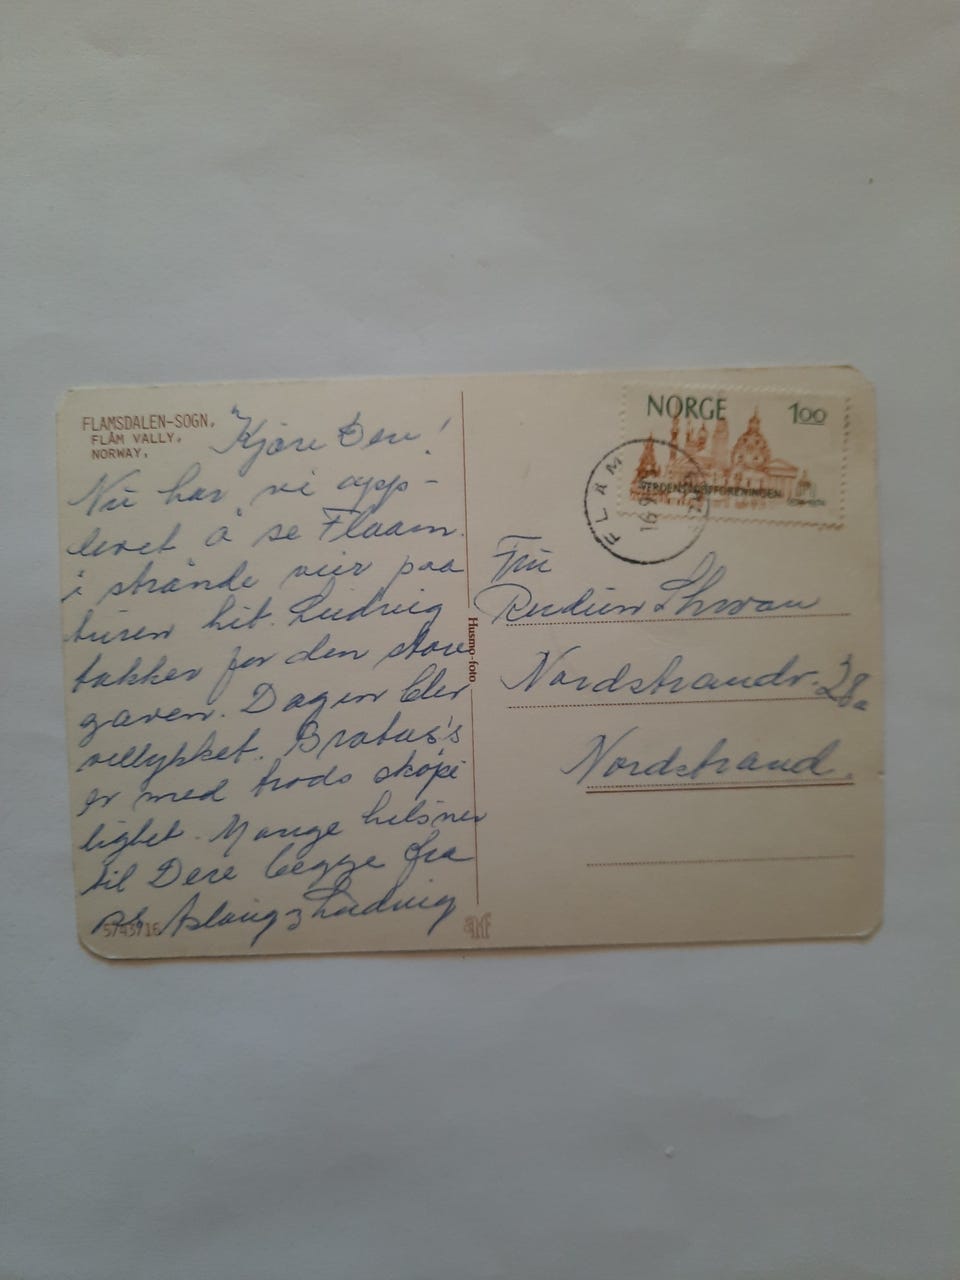 FLAMSDALEN-SOGN,
FLÅM VALLY,
NORWAY,
Kjære Dere!
Nu har vi opp-
levet å se Flaam
i strånde veier paa
turen hit. Ludvig
takker for den store
gaven. Dagen blev
vellykket.
er med trods
lighet. Mange hilsner
til Dere begge fra
Aslaug & Ludvig
5743/16
Husmo-foto
NORGE 100
VERDENSPOSTFORENINGEN
FLÅM
16.9
Fru
Nordstrandv. 28a
Nordstrand.